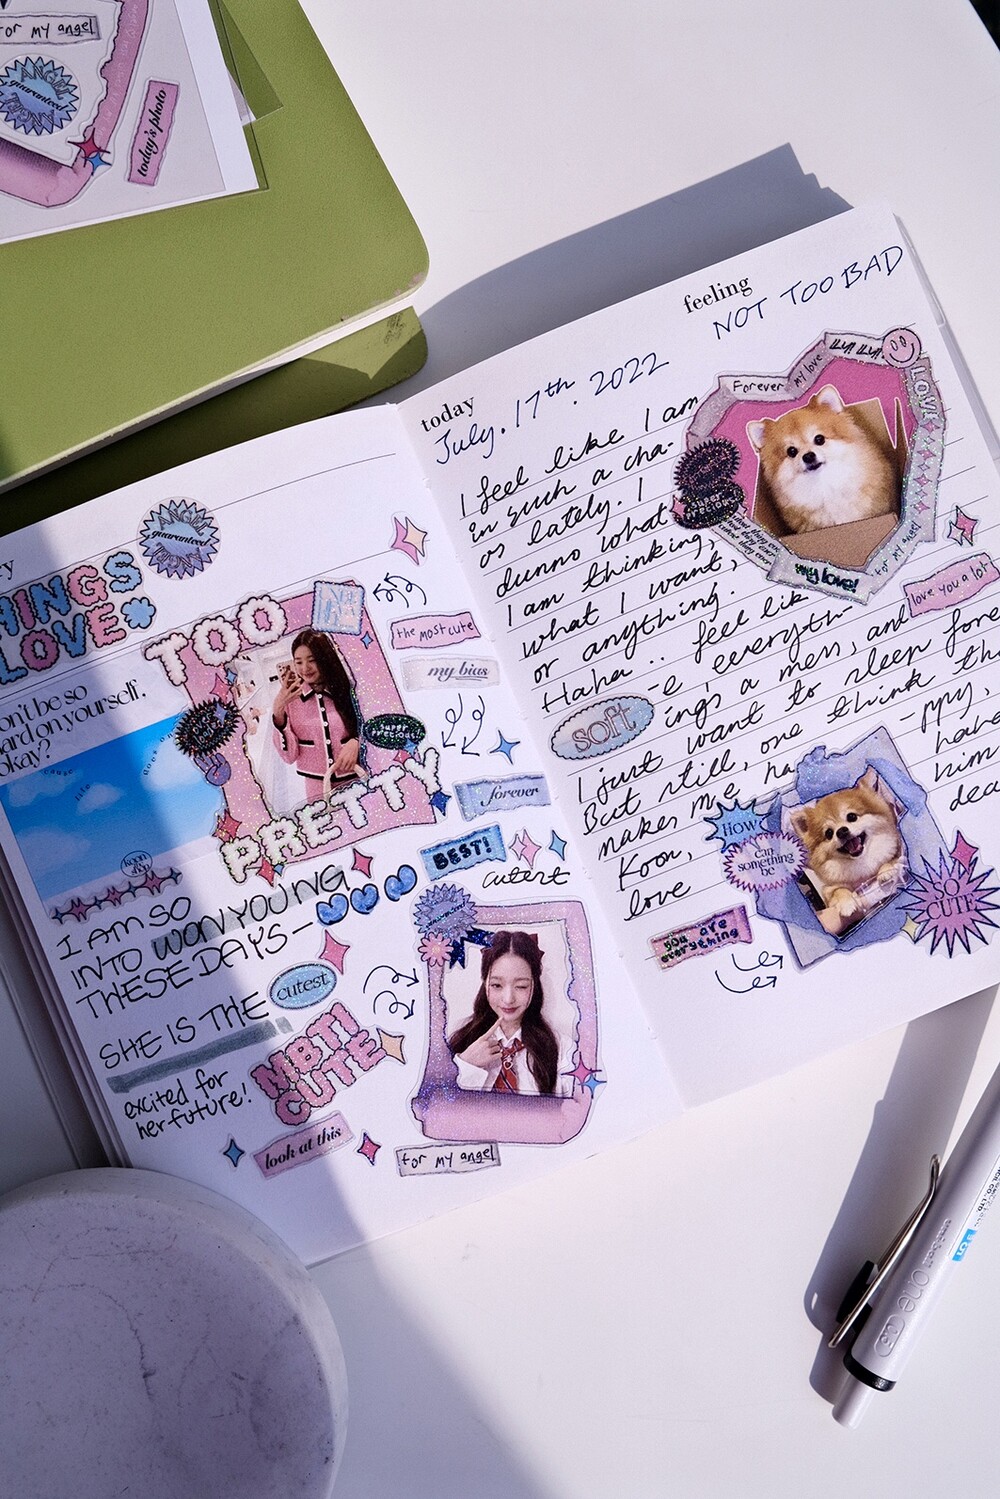 for my angel
ANGEL
guaranteed
ANGEL
today's photo
THINGS
LOVE
ANGEL
guaranteed
don't be so
hard on yourself,
okay?
TOO
PRETTY
the most cute
my bias
super
precious!
forever
BEST!
cutest
I AM SO
INTO WONYOUNG
THESE DAYS-
SHE IS THE cutest
MBTI
CUTE
excited for
her future!
look at this
for my angel
today
July. 17th. 2022
feeling
NOT TOO BAD
I feel like I am
in such a cha-
os lately. I
dunno what
I am thinking,
what I want,
or anything.
Haha.. feel lik
-e everyth-
ing's a mess, and
I just want to sleep fore
But still, one think tha
makes me ha -ppy,
Koon, hehe
love him
dea
Forever my love
LOVE
super
precious
my love!
for my angel
love you a lot
soft
HOW
can
something
be
SO
CUTE
you are
everything
uni-ball one
0.5